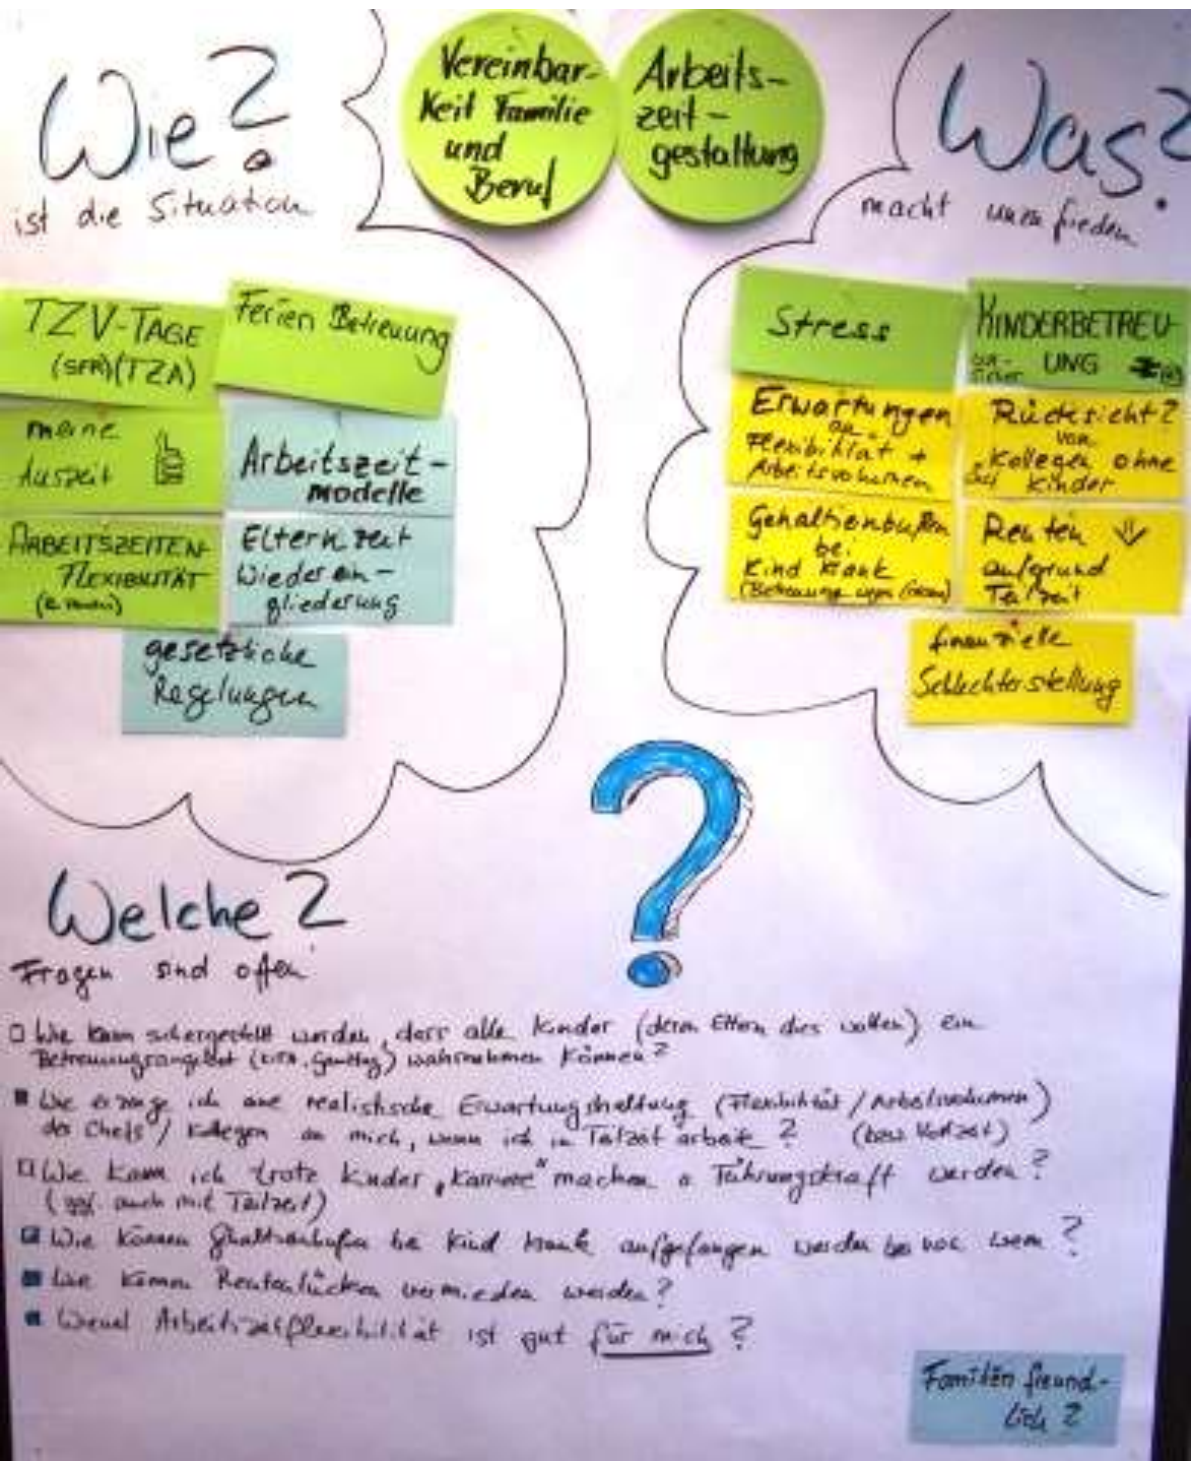 Wie?
ist die Situation
Vereinbar-
keit Familie
und
Beruf
Arbeits-
zeit-
gestaltung
Was?
macht unzufrieden
TZV-TAGE
(SFR)(TZA)
Ferien Betreuung
meine
Auszeit
Arbeitszeit-
modelle
ARBEITSZEITEN-
FLEXIBILITÄT
Elternzeit
Wiederein-
gliederung
gesetzliche
Regelungen
Stress
KINDERBETREU-
UNG
Erwartungen
an
Flexibilität +
Arbeitsvolumen
Rücksicht?
von
Kollegen ohne
Kinder
Gehaltseinbußen
bei
Kind krank
(Betreuung
Renten ⇓
aufgrund
Teilzeit
finanzielle
Schlechterstellung
?
Welche?
Fragen sind offen
Wie kann sichergestellt werden, dass alle Kinder (deren Eltern dies wollen) ein
Betreuungsangebot (Kita, Ganztag) wahrnehmen können?
Wie erzeuge ich eine realistische Erwartungshaltung (Flexibilität / Arbeitsvolumen)
des Chefs / Kollegen an mich, wenn ich in Teilzeit arbeite? (bzw. Vollzeit)
Wie kann ich trotz Kinder „Karriere" machen o Führungskraft werden?
(ggf. auch mit Teilzeit)
Wie können Gehaltseinbußen bei Kind krank aufgefangen werden bzw. von wem?
Wie können Rentenlücken vermieden werden?
Wieviel Arbeitszeitflexibilität ist gut für mich?
Familien freund-
lich?